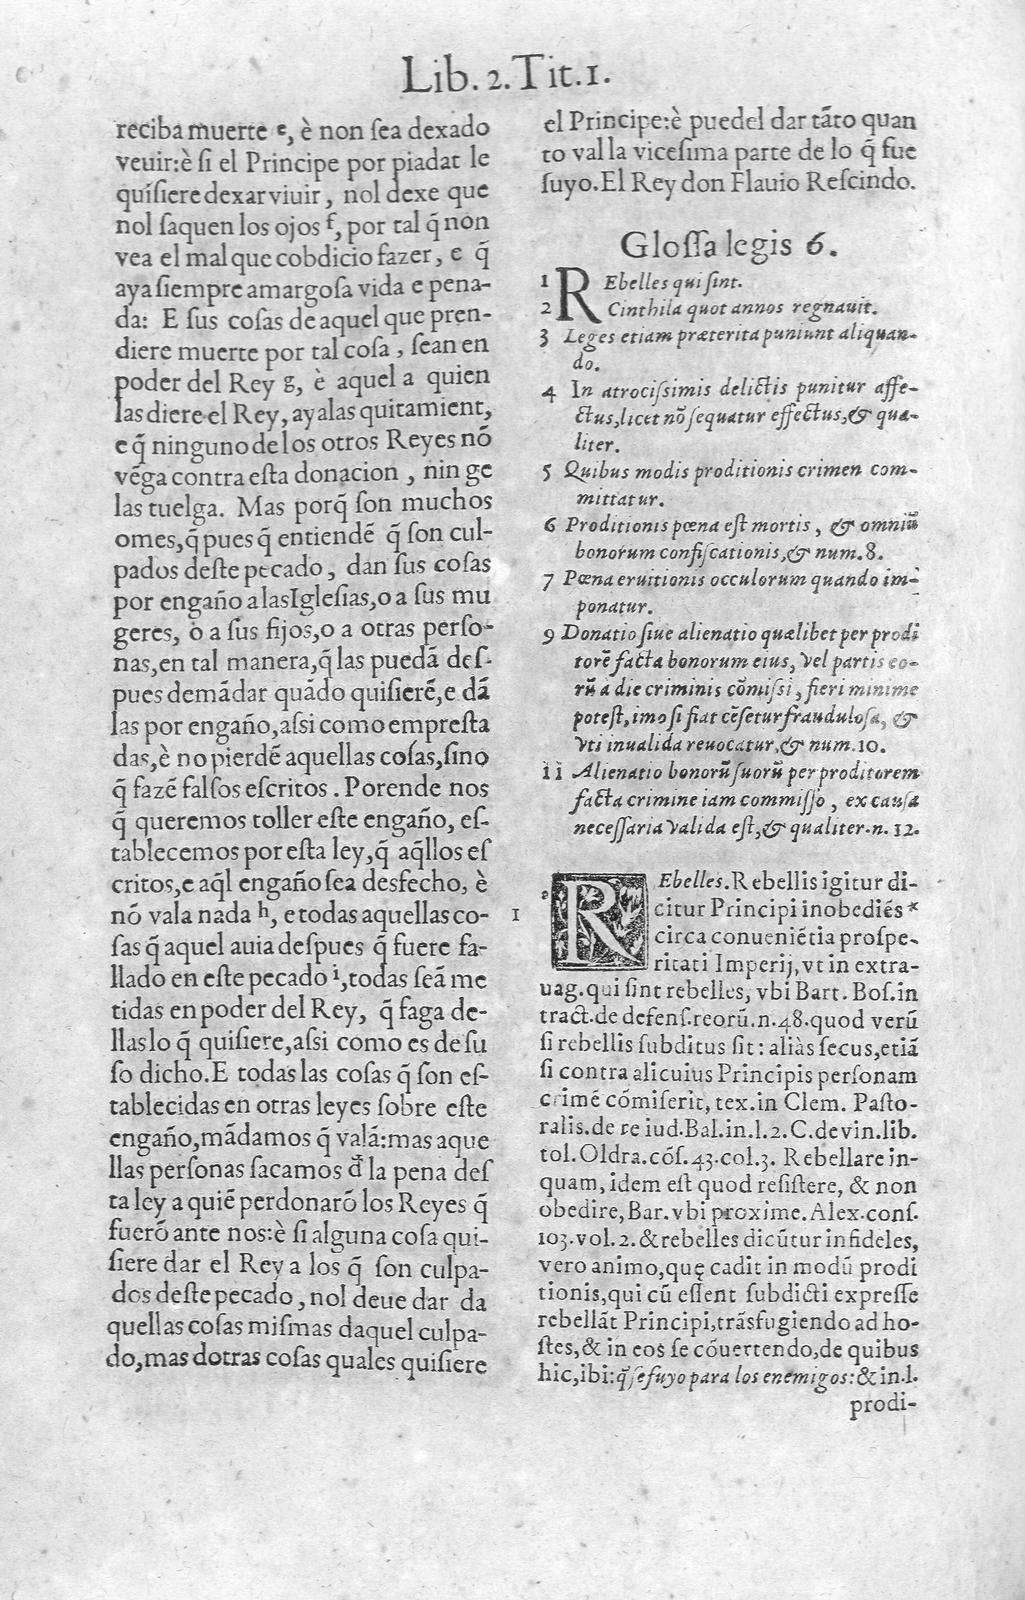 Lib. 2. Tit. 1.
reciba muerte e, è non ſea dexado
veuir:è ſi el Principe por piadat le
quiſiere dexar viuir, nol dexe que
nol ſaquen los ojos f, por tal q̃ non
vea el mal que cobdicio fazer, e q̃
aya ſiempre amargoſa vida e pena-
da: E ſus coſas de aquel que pren-
diere muerte por tal coſa, ſean en
poder del Rey g, è aquel a quien
las diere el Rey, ayalas quitamient,
e q̃ ninguno de los otros Reyes nõ
vẽga contra eſta donacion, nin ge
las tuelga. Mas porq̃ ſon muchos
omes,q̃ pues q̃ entiendẽ q̃ ſon cul-
pados deſte pecado, dan ſus coſas
por engaño a lasIgleſias,o a ſus mu
geres, o a ſus fijos,o a otras perſo-
nas,en tal manera,q̃ las puedã deſ-
pues demãdar quãdo quiſierẽ,e dã
las por engaño,aſsi como empreſta
das,è no pierdẽ aquellas coſas,ſino
q̃ fazẽ falſos eſcritos. Porende nos
q̃ queremos toller eſte engaño, eſ-
tablecemos por eſta ley,q̃ aq̃llos eſ
critos,e aq̃l engaño ſea desfecho, è
nõ vala nada h, e todas aquellas co-
ſas q̃ aquel auia deſpues q̃ fuere fa-
llado en eſte pecado i,todas ſeã me
tidas en poder del Rey, q̃ faga de-
llas lo q̃ quiſiere,aſsi como es de ſu
ſo dicho.E todas las coſas q̃ ſon eſ-
tablecidas en otras leyes ſobre eſte
engaño,mãdamos q̃ valã:mas aque
llas perſonas ſacamos d̃ la pena deſ
ta ley a quiẽ perdonarõ los Reyes q̃
fuerõ ante nos:è ſi alguna coſa qui-
ſiere dar el Rey a los q̃ ſon culpa-
dos deſte pecado, nol deue dar da
quellas coſas miſmas daquel culpa-
do,mas dotras coſas quales quiſiere
el Principe:è puedel dar tãto quan
to val la viceſima parte de lo q̃ fue
ſuyo.El Rey don Flauio Reſcindo.
Gloſſa legis 6.
1 REbelles qui ſint.
2 Cinthila quot annos regnauit.
3 Leges etiam præterita puniunt aliquan-
do.
4 In atrociſsimis delictis punitur affe-
ctus,licet nõ ſequatur effectus,& qua-
liter.
5 Quibus modis proditionis crimen com-
mittatur.
6 Proditionis pœna eſt mortis, & omniũ
bonorum confiſcationis,& num.8.
7 Pœna eruitionis occulorum quando im-
ponatur.
9 Donatio ſiue alienatio quælibet per prodi
torẽ facta bonorum eius, vel partis eo-
rũ a die criminis cõmiſsi, fieri minime
poteſt,imo ſi fiat cẽſetur fraudulosa, &
vti inualida reuocatur,& num.10.
11 Alienatio bonorũ ſuorũ per proditorem
facta crimine iam commiſſo, ex cauſa
neceſſaria valida eſt,& qualiter.n.12.
REbelles. Rebellis igitur di-
1 citur Principi inobediẽs *
circa conueniẽtia proſpe-
ritati Imperij, vt in extra-
uag.qui ſint rebelles, vbi Bart. Boſ.in
tract.de defenſ.reorũ.n.48.quod verũ
ſi rebellis ſubditus ſit: aliàs ſecus,etiã
ſi contra alicuius Principis perſonam
crimẽ cõmiſerit, tex.in Clem. Paſto-
ralis.de re iud.Bal.in.l.2.C.de vin.lib.
tol.Oldra.cóſ.43.col.3. Rebellare in-
quam, idem eſt quod reſiſtere, & non
obedire, Bar. vbi proxime. Alex.conſ.
103.vol.2.& rebelles dicũtur infideles,
vero animo,quę cadit in modũ prodi
tionis,qui cũ eſſent ſubdicti expreſſe
rebellãt Principi,trãsfugiendo ad ho-
ſtes,& in eos ſe cõuertendo,de quibus
hic,ibi:q̃ ſe fuyo para los enemigos:& in.l.
prodi-